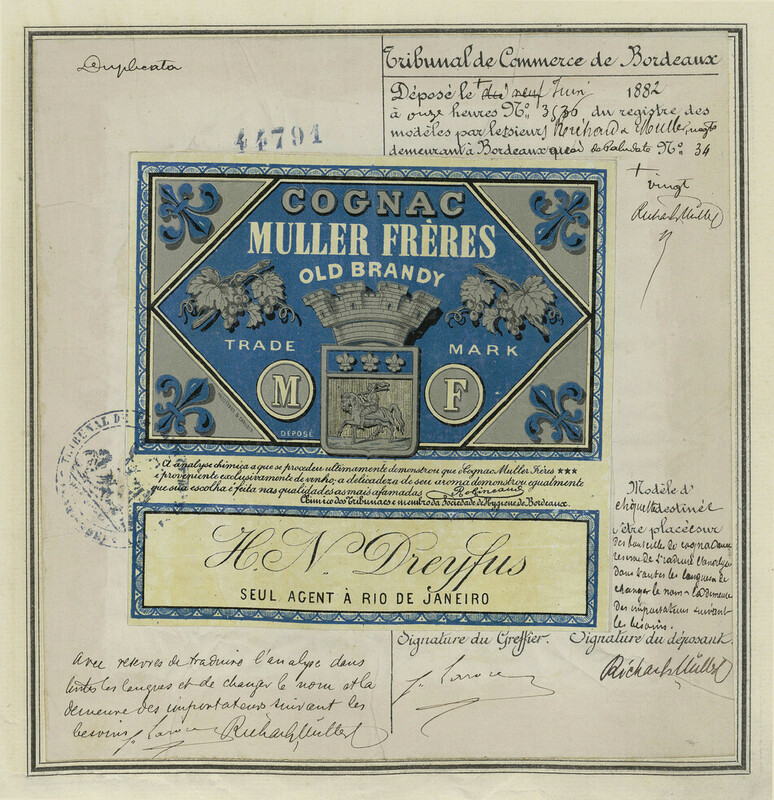 Duplicata
Tribunal de Commerce de Bordeaux
Déposé le + dix neuf Juin 1882
à onze heures Nº 3536 du registre des
modèles par le sieurs Richard & Muller, negts
demeurant à Bordeaux quai de Paludate Nº 34
+ vingt
Richard & Müller
44791
COGNAC
MULLER FRÈRES
OLD BRANDY
TRADE MARK
M F
DÉPOSÉ
A analyse chimica a que se procedeu ultimamente demonstrou que o Cognac Muller Frères ★★★
é proveniente exclusivamente de vinho; a delicadeza de seu aroma demonstrou egualmente
que sua escolha é feita nas qualidades as mais afamadas Robineaud
Chimico dos Tribunaes e membro da Sociedade de Hygiene de Bordeaux.
H. N. Dreyfus
SEUL AGENT À RIO DE JANEIRO
TRIBUNAL DE
Modèle d'
étiquette destinée
à être placée sur
des bouteilles de cognac avec
réserve de traduire l'analyse
dans toutes les langues et de
changer le nom et la demeure
des importateurs suivant
les besoins.
Signature du Greffier. Signature du déposant.
Richard & Müller
Avec réserves de traduire l'analyse dans
toutes les langues et de changer le nom et la
demeure des importateurs suivant les
besoins Richard & Müller